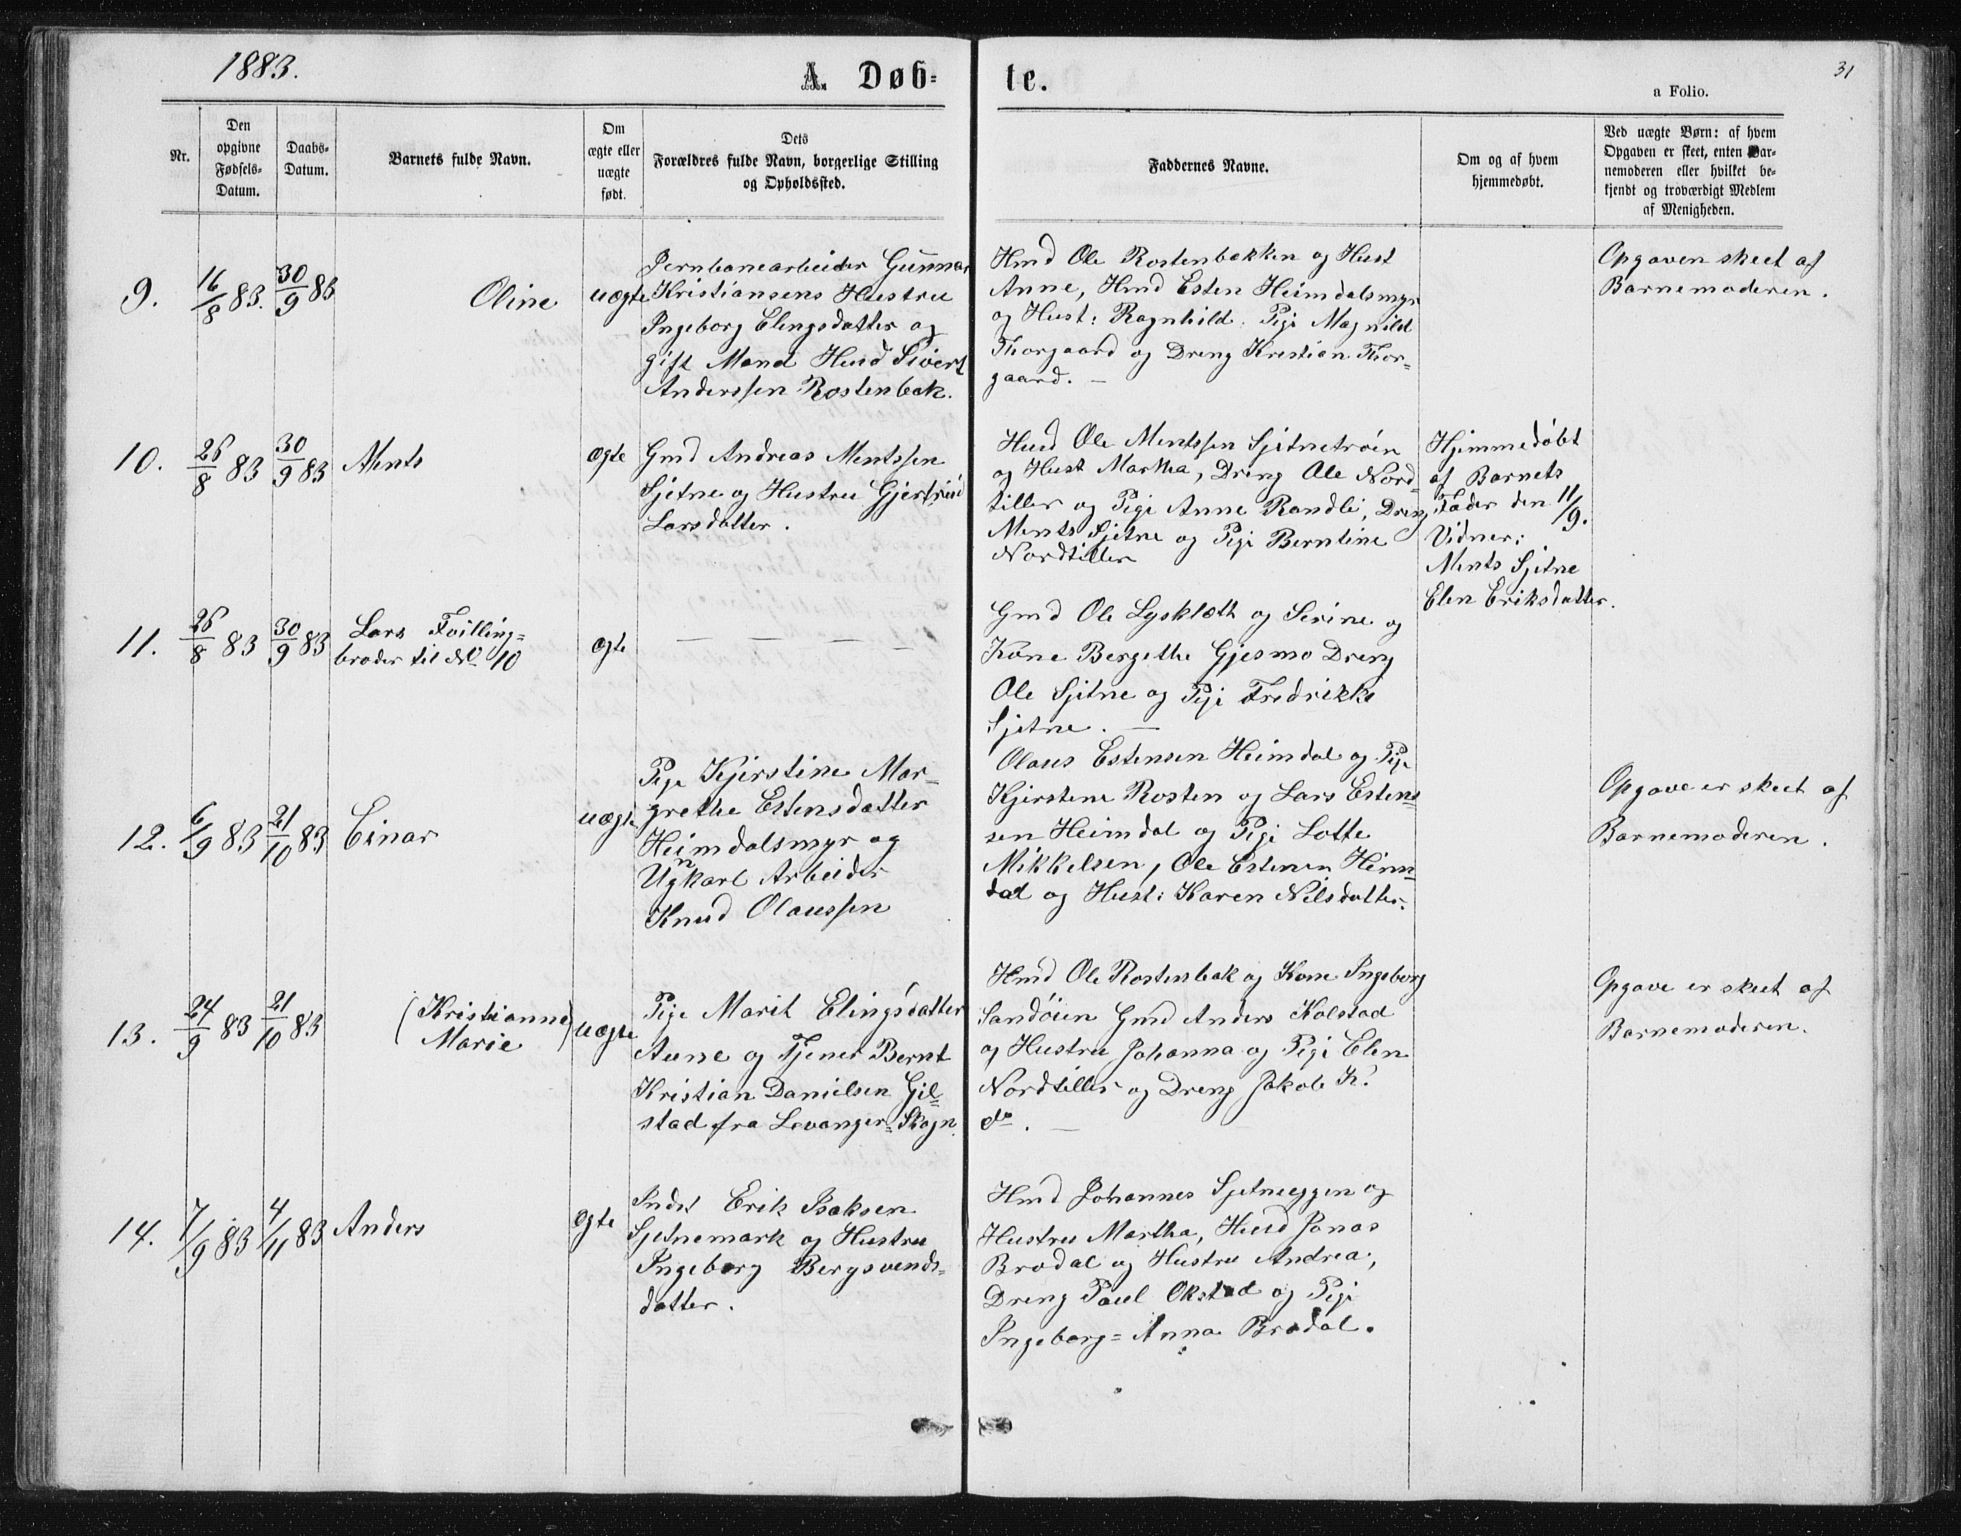 1883.
A. Døb-
te.
31
a Folio.
Nr.
Den
opgivne
Fødsels-
Datum.
Daabs-
Datum.
Barnets fulde Navn.
Om
ægte eller
uægte
født.
Dets
Forældres fulde Navn, borgerlige Stilling
og Opholdssted.
Faddernes Navne.
Om og af hvem
hjemmedøbt.
Ved uægte Børn: af hvem
Opgaven er skeet, enten Bar-
nemoderen eller hvilket be-
kjendt og troværdigt Medlem
af Menigheden.
9.
16/8 83.
30/9 83
Oline
uægte
Jernbanearbeider Gunnar
Kristiansens Hustru
Ingeborg Elingsdatter og
gift Mand Hmd Sivert
Anderssen Rostenbak.
Hmd Ole Rostenbakken og Hust
Anne, Hmd Esten Heimdalsmyr
og Hust: Ragnhild. Pige Magnild
Thorgaard og Dreng Kristian Thor-
gaard. —
Opgaven skeet af
Barnemoderen.
10.
26/8 83
30/9 83
Ments
ægte
Gmd Andreas Mentssen
Sjetne og Hustru Gjertrud
Larsdatter.
Hmd Ole Mentssen Sjetnetrøen
og Hust Martha, Dreng Ole Nord-
tiller og Pige Anne Randli, Dreng
Ments Sjetne og Pige Berntine
Nordtiller
Hjemmedöbt
af Barnets
Fader den 11/9.
Vidner:
Ments Sjetne
Elen Eriksdatter.
11.
26/8 83
30/9 83
Lars Tvilling=
broder til No 10
ægte
— — — —
Gmd Ole Lysklæth og Serine og
Kone Bergethe Gjesmo Dreng
Ole Sjetne og Pige Fredrikke
Sjetne. —
12.
6/9 83
21/10 83
Einar
uægte
Pige Kjerstine Mar-
grethe Estensdatter
Heimdalsmyr og
Ungkarl Arbeider
Knud Olaussen
Olaus Estensen Heimdal og Pige
Kjerstene Rosten og Lars Esten-
sen Heimdal og Pige Lotte
Mikkelsen, Ole Estensen Heim-
dal og Hust: Karen Nilsdatter.
Opgave er skeet af
Barnemoderen.
13.
24/9 83
21/10 83
(Kristianne)
Marie
uægte
Pige Marit Elingsdatter
Aune og Tjener Bernt
Kristian Danielsen Gjel=
stad fra Levanger=Skogn.
Hmd Ole Rostenbak og Kone Ingeborg
Sandöien Gmd Anders Kolstad
og Hustru Johanna og Pige Elen
Nordtiller og Dreng Jakob K.
do. —
Opgave er skeet af
Barnemoderen.
14.
7/9 83
4/11 83
Anders
ægte
Inds Erik Isaksen
Sjetnemark og Hustru
Ingeborg Bergsvends-
datter.
Hmd Johannes Sjetneeggen og
Hustru Martha, Hmd Jonas
Brødal og Hustru Andrea,
Dreng Paul Okstad og Pige
Ingeborg=Anna Brødal.